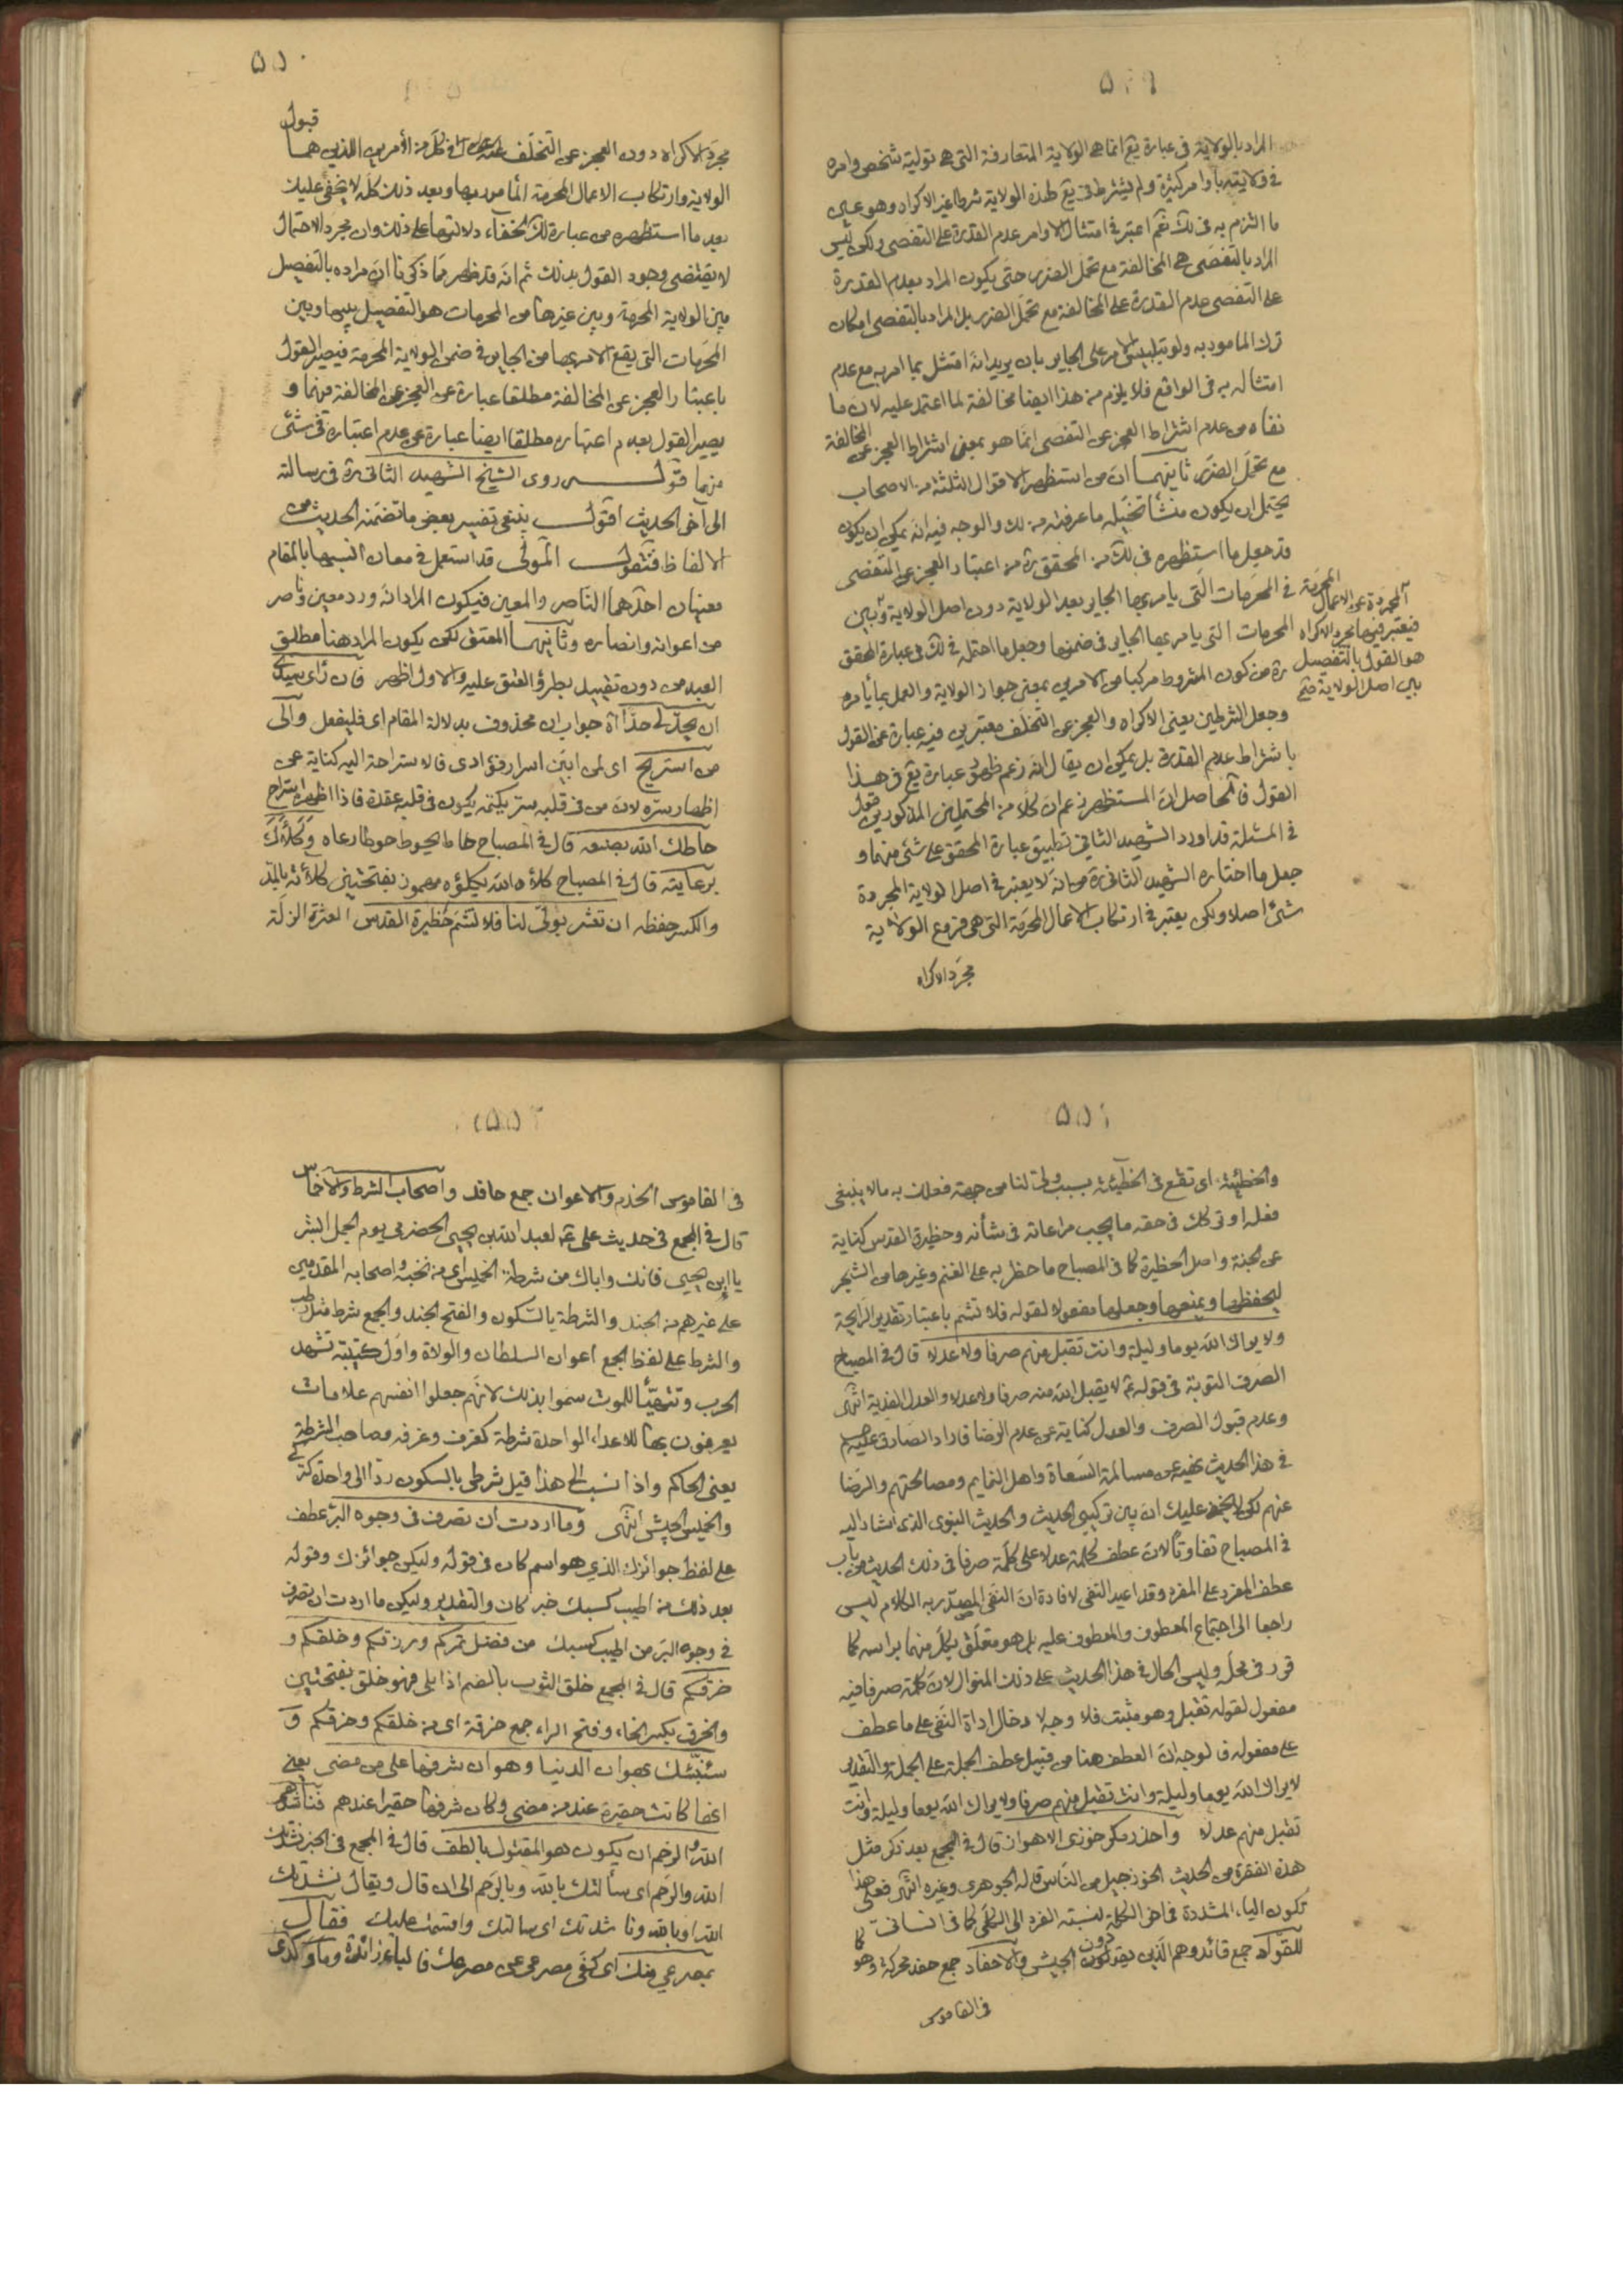 ۵۴۹
المراد بالولاية فى عبارة يع انما هى الولاية المتعارفة التى هى تولية شخص وامره
فى ولايته باوامر كثيرة ولم يشترط فى يع لهذه الولاية شرطا غير الاكراه وهو عين
ما التزم به فى لك نعم اعتبر فى امتثال الاوامر عدم القدرة على التفصى ولكن ليس
المراد بالتفصى هى المخالفة مع تحمل الضرر حتى يكون المراد بعدم القدرة
على التفصى عدم القدرة على المخالفة مع تحمل الضرر بل المراد بالتفصى امكان
ترك المامور به ولو بتلبيس الامر على الجاير بان يريد انه امتثل بما امر به مع عدم
امتثاله به فى الواقع فلا يلزم من هذا ايضا مخالفة لما اعتمد عليه لان ما
نفاه من عدم اشتراط العجز عن التفصى انما هو بمعنى اشتراط العجز عن المخالفة
مع تحمل الضرر ثانيهما ان من استظهر الاقوال الثلثة من الاصحاب
يحتمل ان يكون منشأ تخيله ما عرفته من لك والوجه فيه انه يمكن ان يكون
قد جعل ما استظهره فى لك من المحقق ره من اعتبار العجز عن التفصى
فى المحرمات التى يامر بها الجاير بعد الولاية دون اصل الولاية وبين
المحرمات التى يامر بها الجاير فى ضمنها وجعل ما احتمله فى لك فى عبارة المحقق
ره من كون المشروط مركبا من الامرين بمعنى جواز الولاية والعمل بما يأمره
وجعل الشرطين يعنى الاكراه والعجز عن التخلف معتبرين فيه عبارة عن القول
باشتراط عدم القدرة بل يمكن ان يقال انه زعم ظهور عبارة يع فى هذا
القول فالحاصل ان المستظهر زعم ان كلا من المحتملين المذكورين قول
فى المسئلة قد اورد الشهيد الثانى تطبيق عبارة المحقق على شئ منهما و
جعل ما اختاره الشهيد الثانى ره من انه لا يعتبر فى اصل الولاية المجردة
شئ اصلا ولكن يعتبر فى ارتكاب الاعمال المحرمة التى هى فروع الولاية
مجرد الاكراه
المجردة عن الاعمال المحرمة
فيعتبر فيها مجرد الاكراه
هو القول بالتفصيل
بين اصل الولاية
۵۵۰
مجرد الاكراه دون العجز عن التخلف فى كل من الأمرين اللذين هما قبول
الولاية وارتكاب الاعمال المحرمة المأمور بها وبعد ذلك كله لا يخفى عليك
بعد ما استظهره من عبارة لك لخفاء دلالتها على ذلك وان مجرد الاحتمال
لا يقتضى وجود القول بذلك ثم انه قد ظهر مما ذكرنا ان مراده بالتفصيل
بين الولاية المحرمة وبين غيرها من المحرمات هو التفصيل بينها وبين
المحرمات التى يقع الامر بها من الجاير فى ضمن الولاية المحرمة فيصير القول
باعتبار العجز عن المخالفة مطلقا عبارة عن العجز عن المخالفة فيهما و
يصير القول بعدم اعتباره مطلقا ايضا عبارة عن عدم اعتباره فى شئ
منهما قوله روى الشيخ الشهيد الثانى ره فى رسالته
الى آخر الحديث اقول ينبغى تفسير بعض ما تضمنه الحديث من
الالفاظ فنقول المولى قد استعمل فى معان انسبها بالمقام
معنيان احدهما الناصر والمعين فيكون المراد انه ورد معين وناصر
من اعوانه وانصاره وثانيهما المعتق لكن يكون المراد هنا مطلق
العبد من دون تقييد بطرؤ العتق عليه والاول اظهر فان رأى سيدى
ان يحد لى حدا اه جواب ان محذوف بدلالة المقام اى فليفعل والى
من استريح اى لمن ابين اسرار فؤادى فالاستراحة اليه كناية عن
اظهار سره لان من فى قلبه سر يكتمه يكون فى قلبه عقدة فاذا اظهره استراح
حاطك الله بصنعه قال فى المصباح حاطه يحوطه حوطا رعاه وكلأك
برعايته قال فى المصباح كلأه الله يكلؤه مهموز بفتحتين كلأئة بالمد
والكسر حفظه ان تعثر بولى لنا فلا تشم حظيرة القدس العثرة الزلة
۵۵۱
والخطيئة اى تقع فى الخطيئة بسبب ولى لنا من جهة فعلك به ما لا ينبغى
فعله او تركك فى حقه ما يجب مراعاته فى شأنه وحظيرة القدس كناية
عن الجنة واصل الحظيرة كما فى المصباح ما حظر به على الغنم وغيرها من الشجر
ليحفظها ويمنعها وجعلها مفعولا لقوله فلا تشم باعتبار تقدير الرايحة
ولا يراك الله يوما وليلة وانت تقبل منهم صرفا ولا عدلا قال فى المصباح
الصرف التوبة فى قوله ع لا يقبل الله منه صرفا ولا عدلا والعدل الفدية انتهى
وعدم قبول الصرف والعدل كناية عن عدم الرضا فاراد الصادق عليه السلم
فى هذا الحديث نهيه عن مسالمة السعاة واهل النمايم ومصالحتهم والرضا
عنهم لكن لا يخفى عليك ان بين تركيبى الحديث والحديث النبوى الذى اشار اليه
فى المصباح تفاوتا لان عطف كلمة عدلا على كلمة صرفا فى ذلك الحديث من باب
عطف المفرد على المفرد وقد اعيد النفى لافادة ان النفى المصدر به الكلام ليس
راجعا الى اجتماع المعطوف والمعطوف عليه بل هو متعلق بكل منهما براسه كما
قرر فى محله وليس الحال فى هذا الحديث على ذلك المنوال لان كلمة صرفا فيه
مفعول لقوله تقبل وهو مثبت فلا وجه لادخال اداة النفى على ما عطف
على مفعوله فالوجه ان العطف هنا من قبيل عطف الجملة على الجملة والتقدير
لا يراك الله يوما وليلة وانت تقبل منهم صرفا ولا يراك الله يوما وليلة وانت
تقبل منهم عدلا واحذر مكر خوزى الاهواز قال فى المجمع بعد ذكر مثل
هذه الفقرة من الحديث الخوز جيل من الناس قاله الجوهرى وغيره انتهى فعلى هذا
تكون الياء المشددة فى اخر الكلمة لنسبة الفرد الى الكلى كما فى انسانى كما
للقواد جمع قائد وهم الذين يقودون الجيش والاحفاد جمع حفد محركة وهو
فى القاموس
۵۵۲
فى القاموس الخدم والاعوان جمع حافد واصحاب الشرط والاخماس
قال فى المجمع فى حديث على ع لعبد الله بن يحيى الحضرمى يوم الجمل ابشر
يا ابن يحيى فانك واباك من شرطة الخميس اى من نخبه واصحابه المقدمين
على غيرهم من الجند والشرطة بالسكون والفتح الجند والجمع شرط مثل رطب
والشرط على لفظ الجمع اعوان السلطان والولاة واول كتيبة تشهد
الحرب وتتهيأ للموت سموا بذلك لانهم جعلوا انفسهم علامات
يعرفون بها للاعداء الواحدة شرطة كغرف وغرفه وصاحب الشرطة
يعنى الحاكم واذا نسب الى هذا قيل شرطى بالسكون ردا الى واحدة كتركى
والخميس الجيش انتهى وما اردت ان تصرف فى وجوه البر عطف
على لفظ جوائزك الذي هو اسم كان فى قوله وليكن جوائزك وقوله
بعد ذلك من اطيب كسبك خبر كان والتقدير وليكن ما اردت ان تصرف
فى وجوه البر من اطيب كسبك من فضل تمركم ورزقكم وخلقكم و
خرقكم قال فى المجمع خلق الثوب بالضم اذا بلى فهو خلق بفتحتين
والخرق بكسر الخاء وفتح الراء جمع خرقة اى من خلقكم وخرقكم و
سننبئك بهوان الدنيا وهوان شرفها على من مضى يعنى
انها كانت حقيرة عند من مضى وكان شرفها حقيرا عندهم فناشدهم
الله والرحم ان يكون هو المقتول بالطف قال فى المجمع فى الخبر نشدتك
الله والرحم اى سألتك بالله وبالرحم الى ان قال ويقال نشدتك
الله او بالله وناشدتك اى سالتك واقسمت عليك فقال
بمصرعى منك اى كفى مصرعى عن مصرعك فالباء زائدة وما وكدى